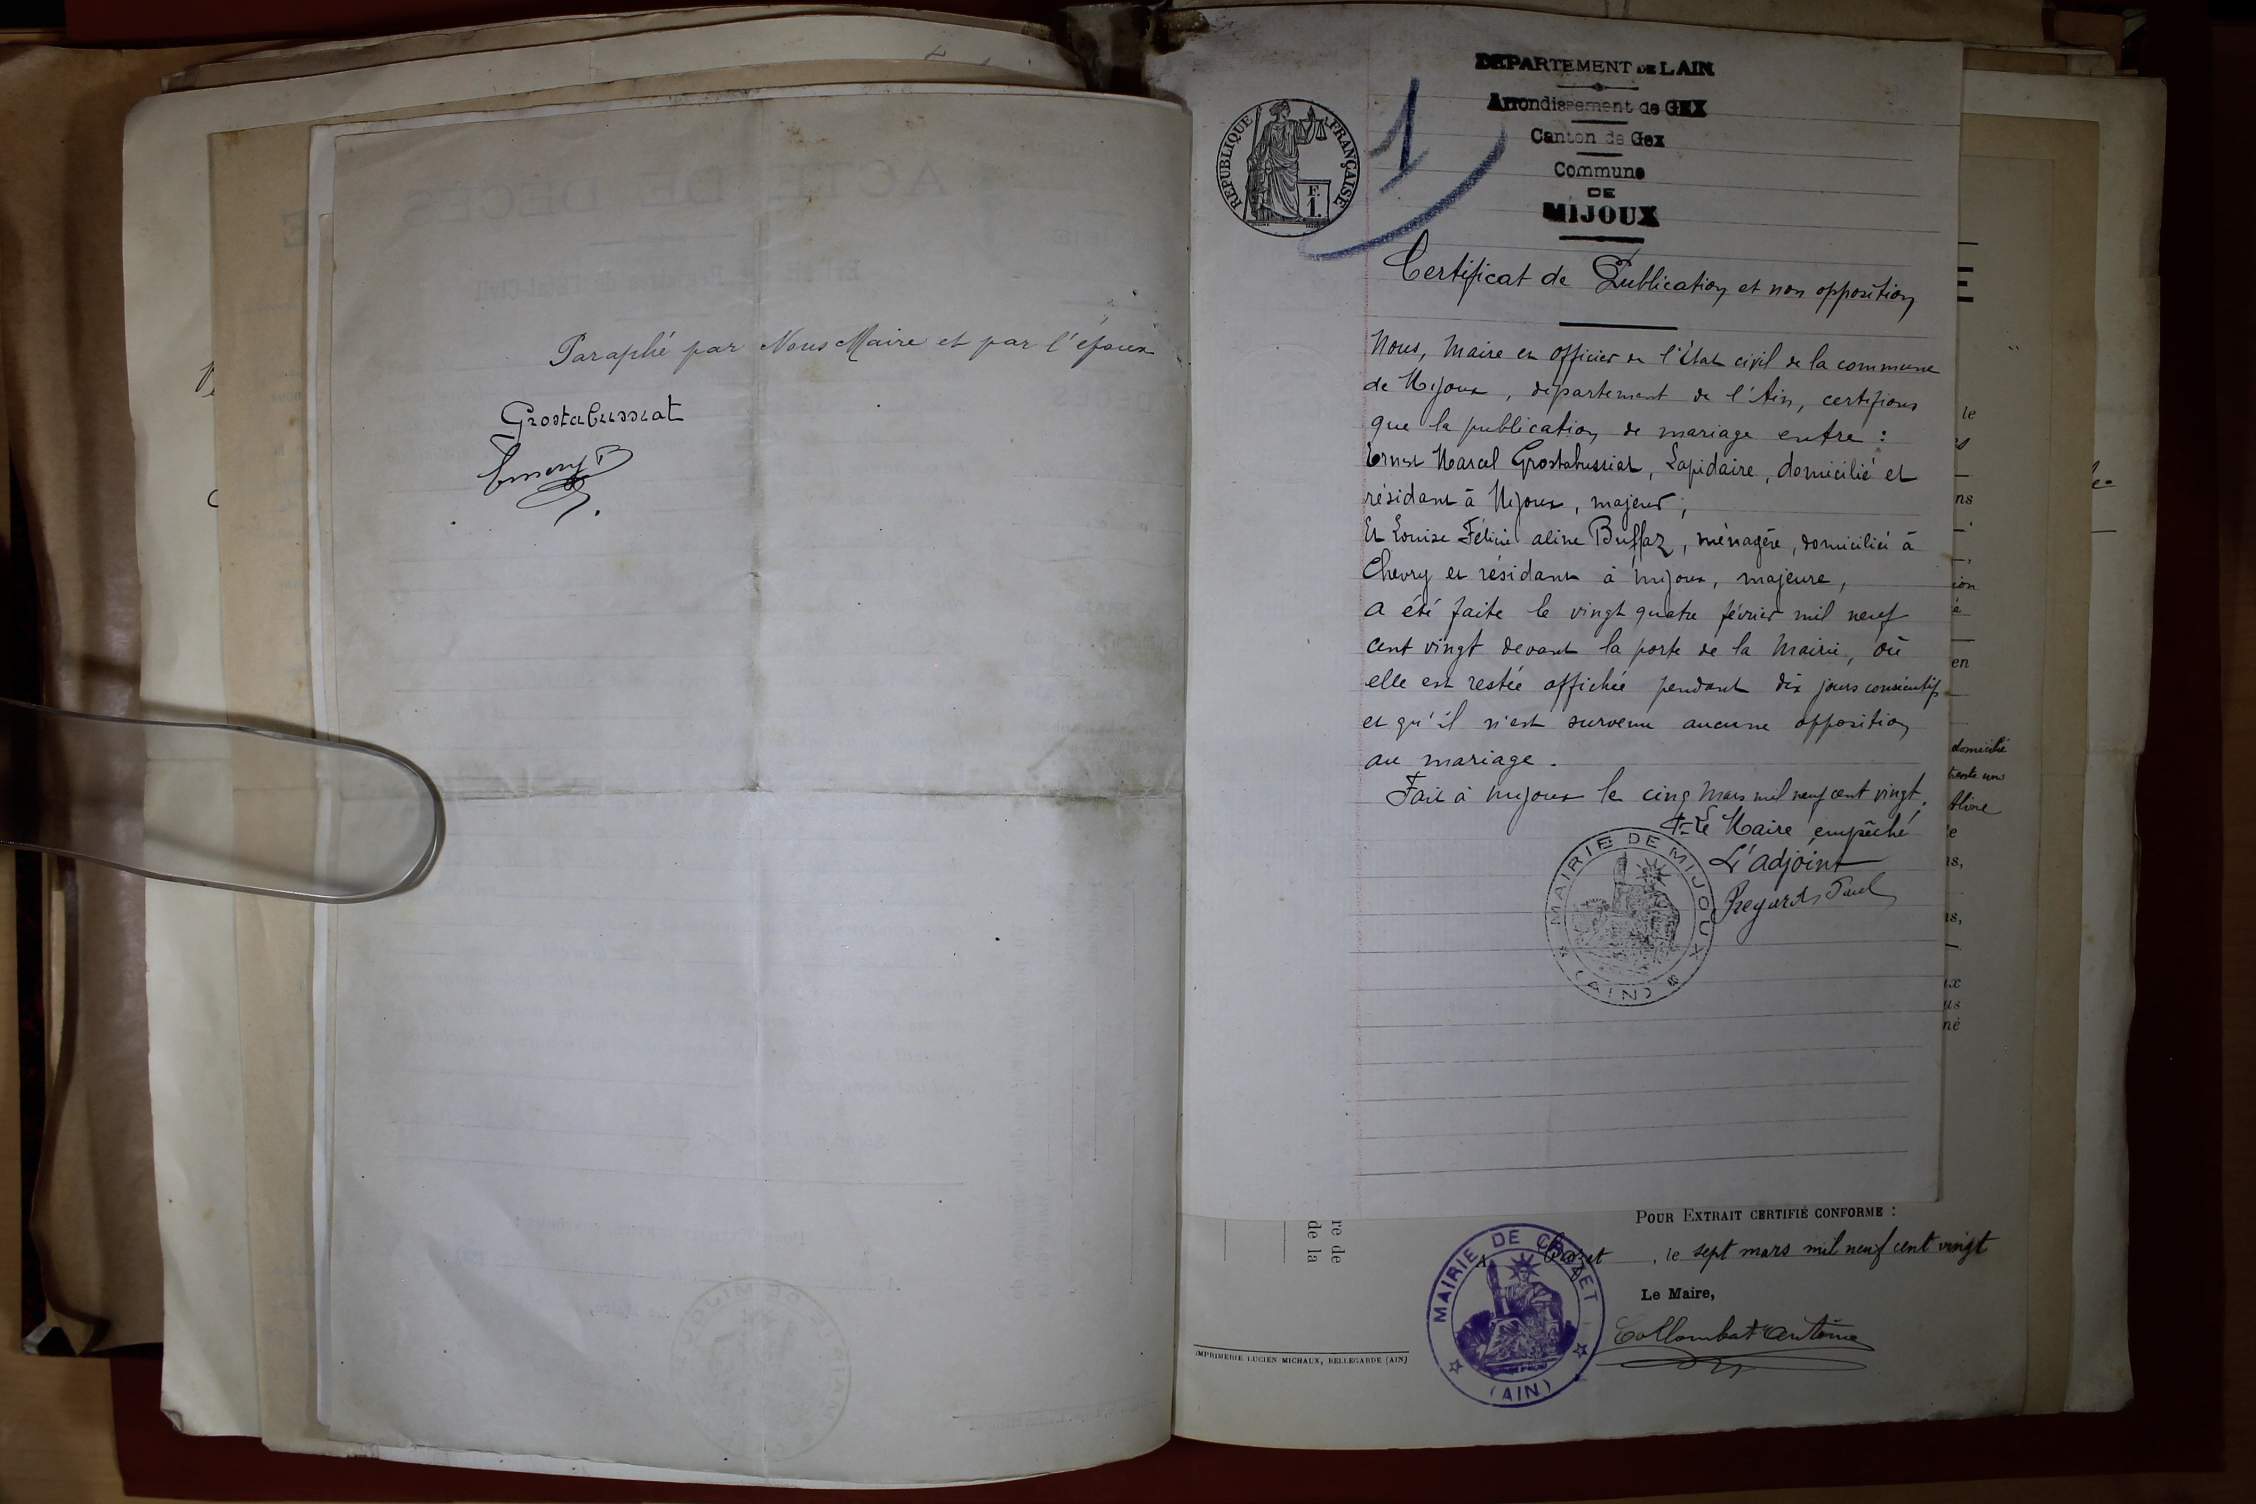 Paraphé par Nous Maire et par l'époux
Grostabussiat
DEPARTEMENT DE L'AIN
Arrondissement de GEX
Canton de Gex
Commune
DE
MIJOUX
REPUBLIQUE FRANÇAISE
F.
1.
1
Certificat de Publication et non opposition
Nous, Maire et officier de l'Etat civil de la commune
de Mijoux, département de l'Ain, certifions
que la publication de mariage entre :
Ernest Marcel Grostabussiat, Lapidaire, domicilié et
résidant à Mijoux, majeur ;
Et Louise Félicie aline Buffaz, ménagère, domiciliée à
Chevry et résidant à Mijoux, majeure,
a été faite le vingt quatre février mil neuf
cent vingt devant la porte de la Mairie, où
elle est restée affichée pendant dix jours consécutifs
et qu'il n'est survenu aucune opposition
au mariage.
Fait à Mijoux le cinq Mars mil neuf cent vingt.
Le Maire empêché
L'adjoint
Regard Paul
MAIRIE DE MIJOUX
(AIN)
le
ns
ion
en
domicilié
trente un
Aline
POUR EXTRAIT CERTIFIÉ CONFORME :
A Crozet, le sept mars mil neuf cent vingt
Le Maire,
Collombat Antoine
MAIRIE DE CROZET
(AIN)
re de
de la
IMPRIMERIE LUCIEN MICHAUX, BELLEGARDE (AIN)